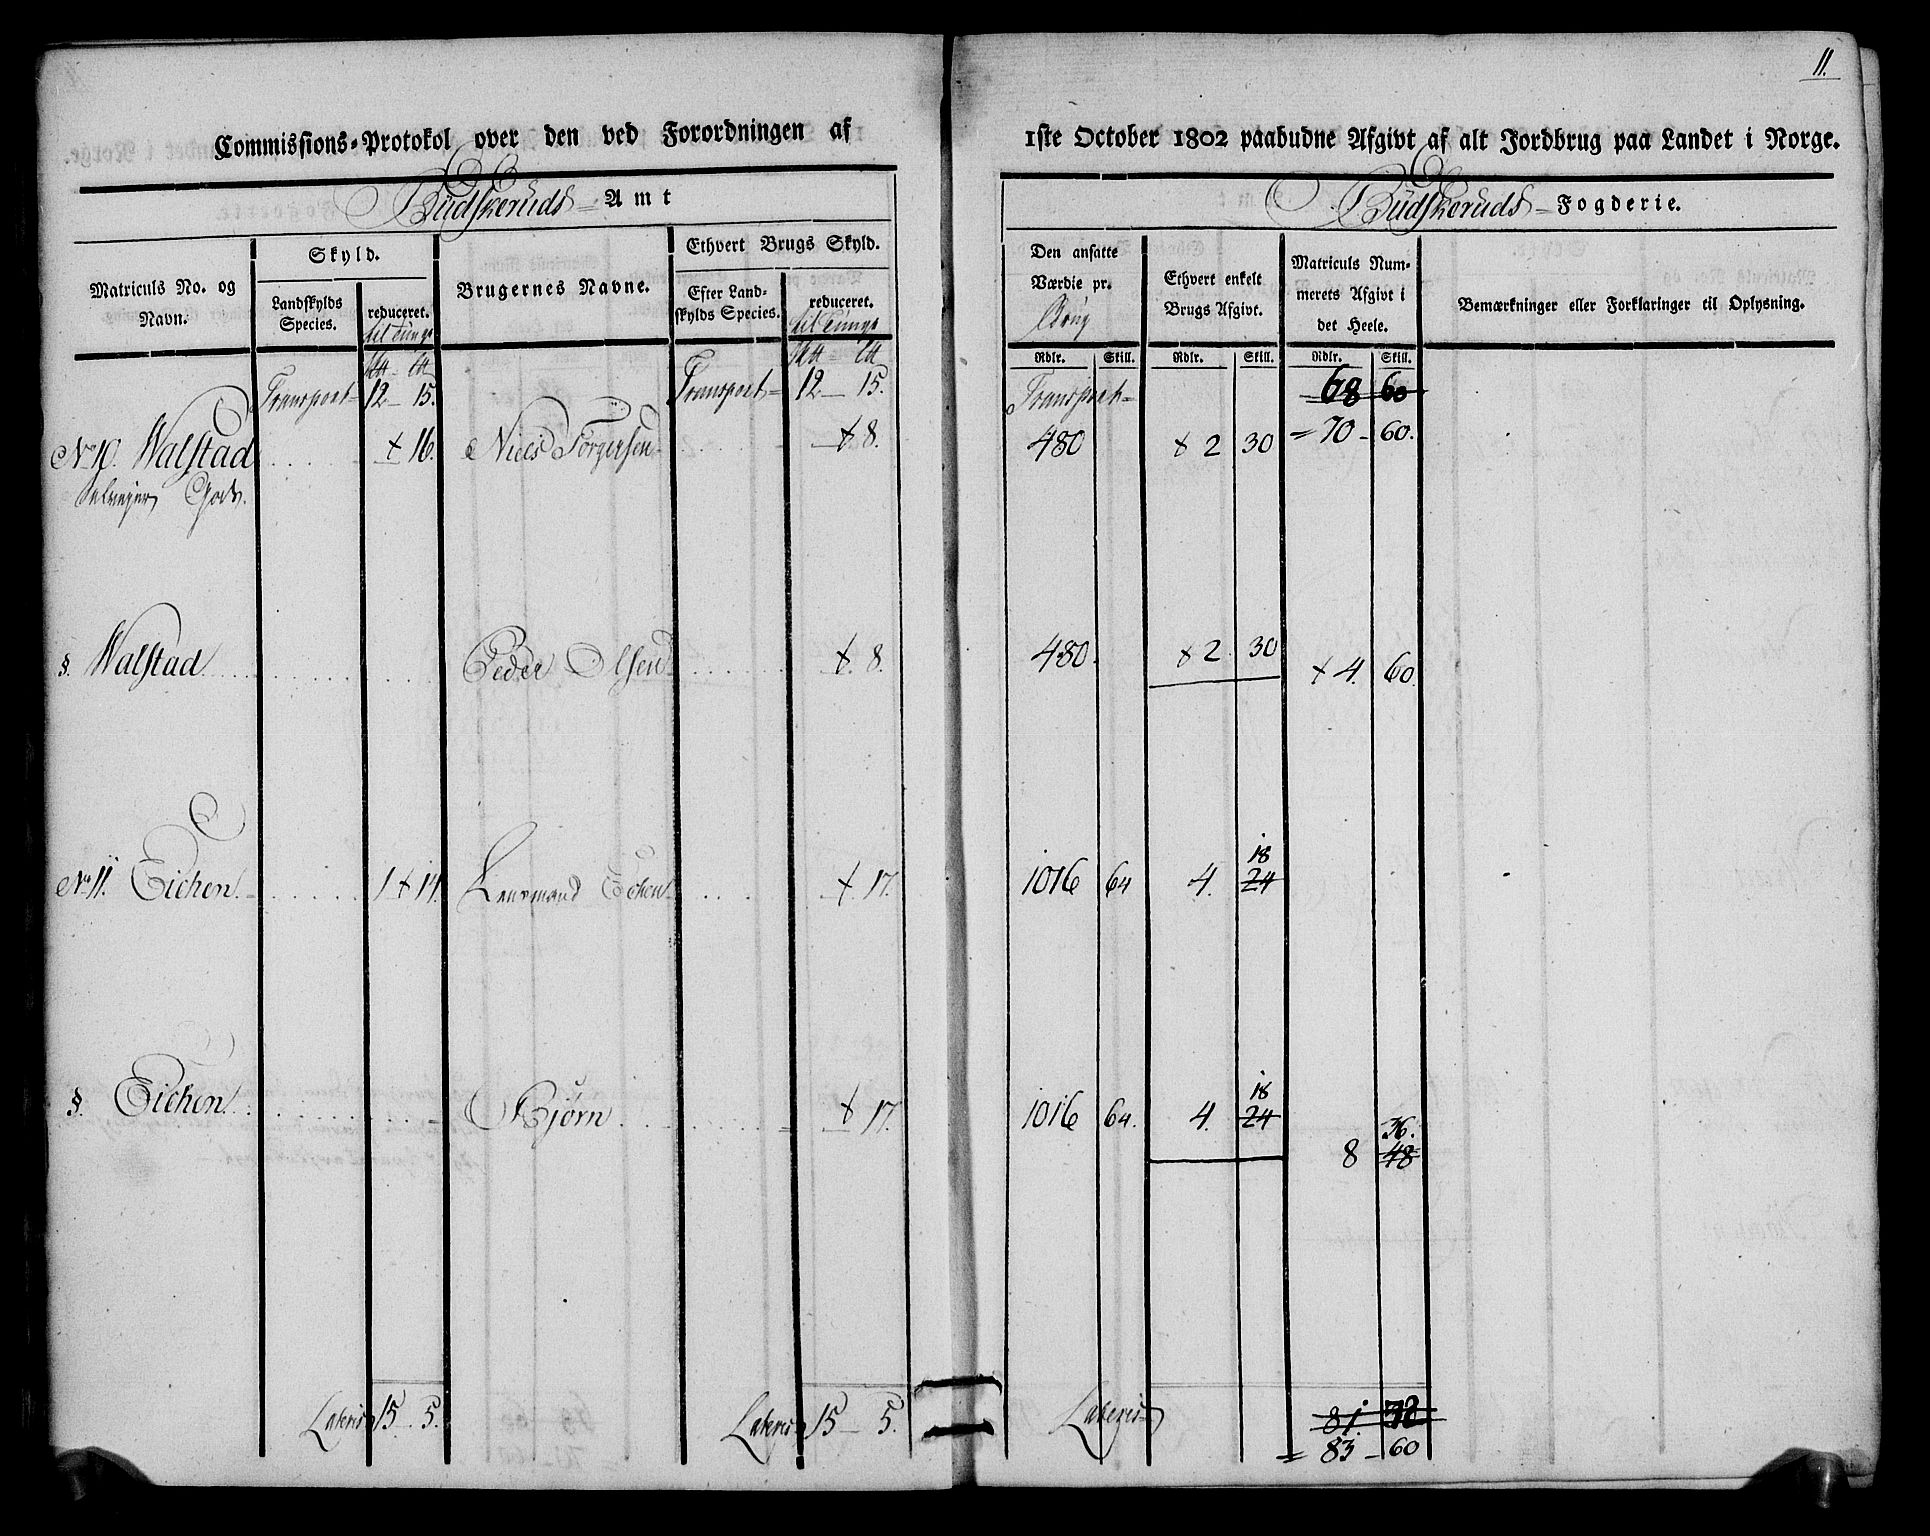 11.
Commissions-Protokol over den ved Forordningen af 1ste October 1802 paabudne Afgivt af alt Jordbrug paa Landet i Norge.
Budskeruds Amt
Budskeruds Fogderie.
Matriculs No. og Navn.
Skyld.
Landskylds Species.
reduceret. til Tunge
Brugernes Navne.
Ethvert Brugs Skyld.
Efter Landskylds Species.
reduceret. til Tunge
Den ansatte Værdie pr. Brug
Rdlr. Skill.
Ethvert enkelt Brugs Afgivt.
Rdlr. Skill.
Matriculs Nummerets Afgivt i det Heele.
Rdlr. Skill.
Bemærkninger eller Forklaringer til Oplysning.
Transport 12 - 15. Transport 12 - 15. Transport 68 60
= 70 - 60.
No 10. Walstad + 16. Niels Torgersen + 8. 480 + 2 30
Selveyer Gods.
§. Walstad Peder Olsen + 8. 480. + 2 30 + 4. 60.
No 11. Eichen 1 + 14. Lensmand Echen + 17. 1016 64 4. 24 18
§. Eichen Bjørn + 17. 1016 64. 4. 24 18 8 48 36.
Lateris 15 - 5. Lateris 15 - 5. Lateris 81.
= 83 - 60